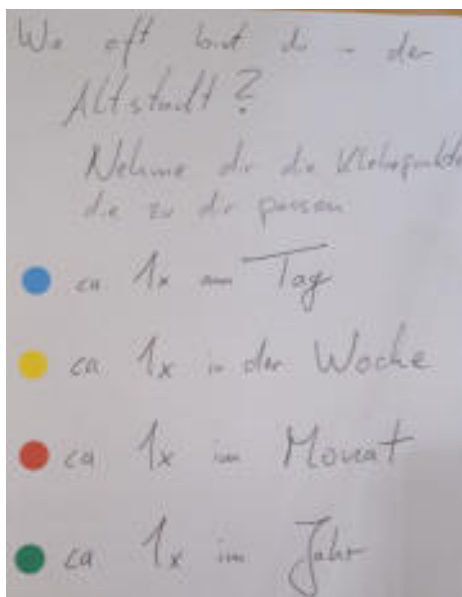 Wo oft bist du in der
Altstadt?
Nehme dir die Klebepunkte
die zu dir passen
ca 1x am Tag
ca 1x in der Woche
ca 1x im Monat
ca 1x im Jahr